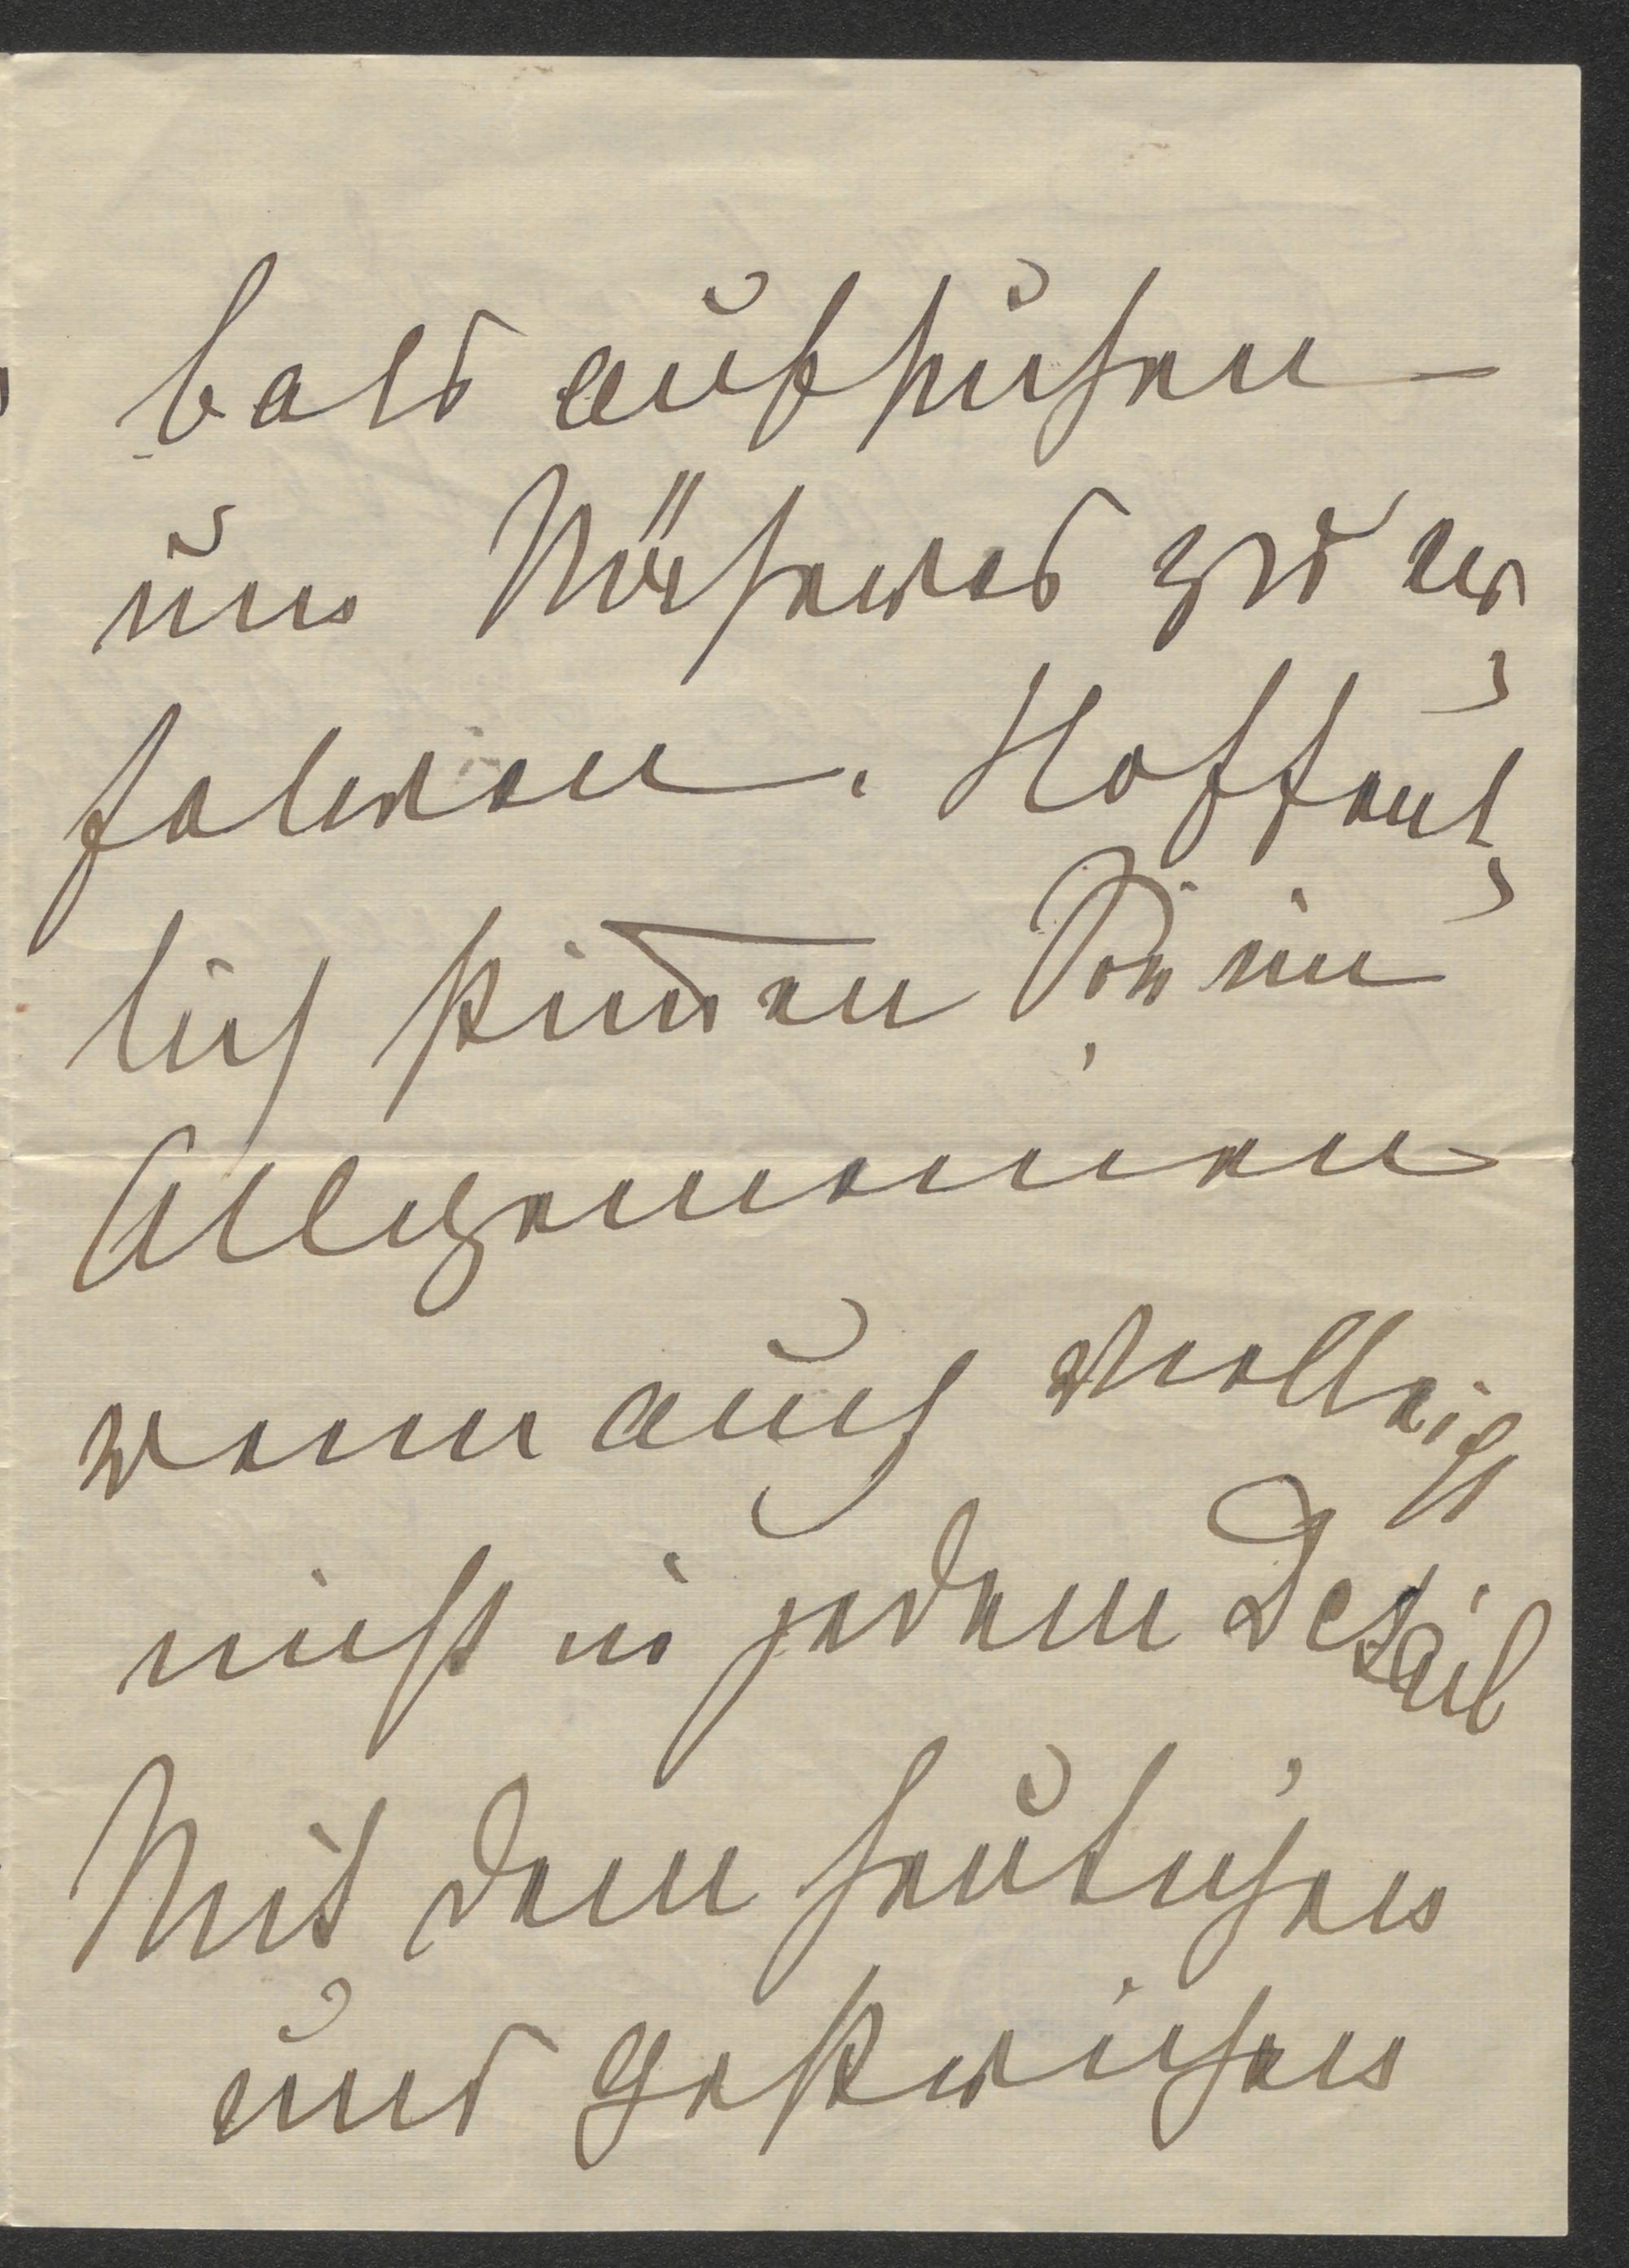 bald aufsuchen
um Näheres zu er-
fahren. Hoffent-
lich stim̅en Sie im
Allgemeinen
wenn auch vielleicht
nicht in jedem Detail
mit dem heutigen
und gestrigen